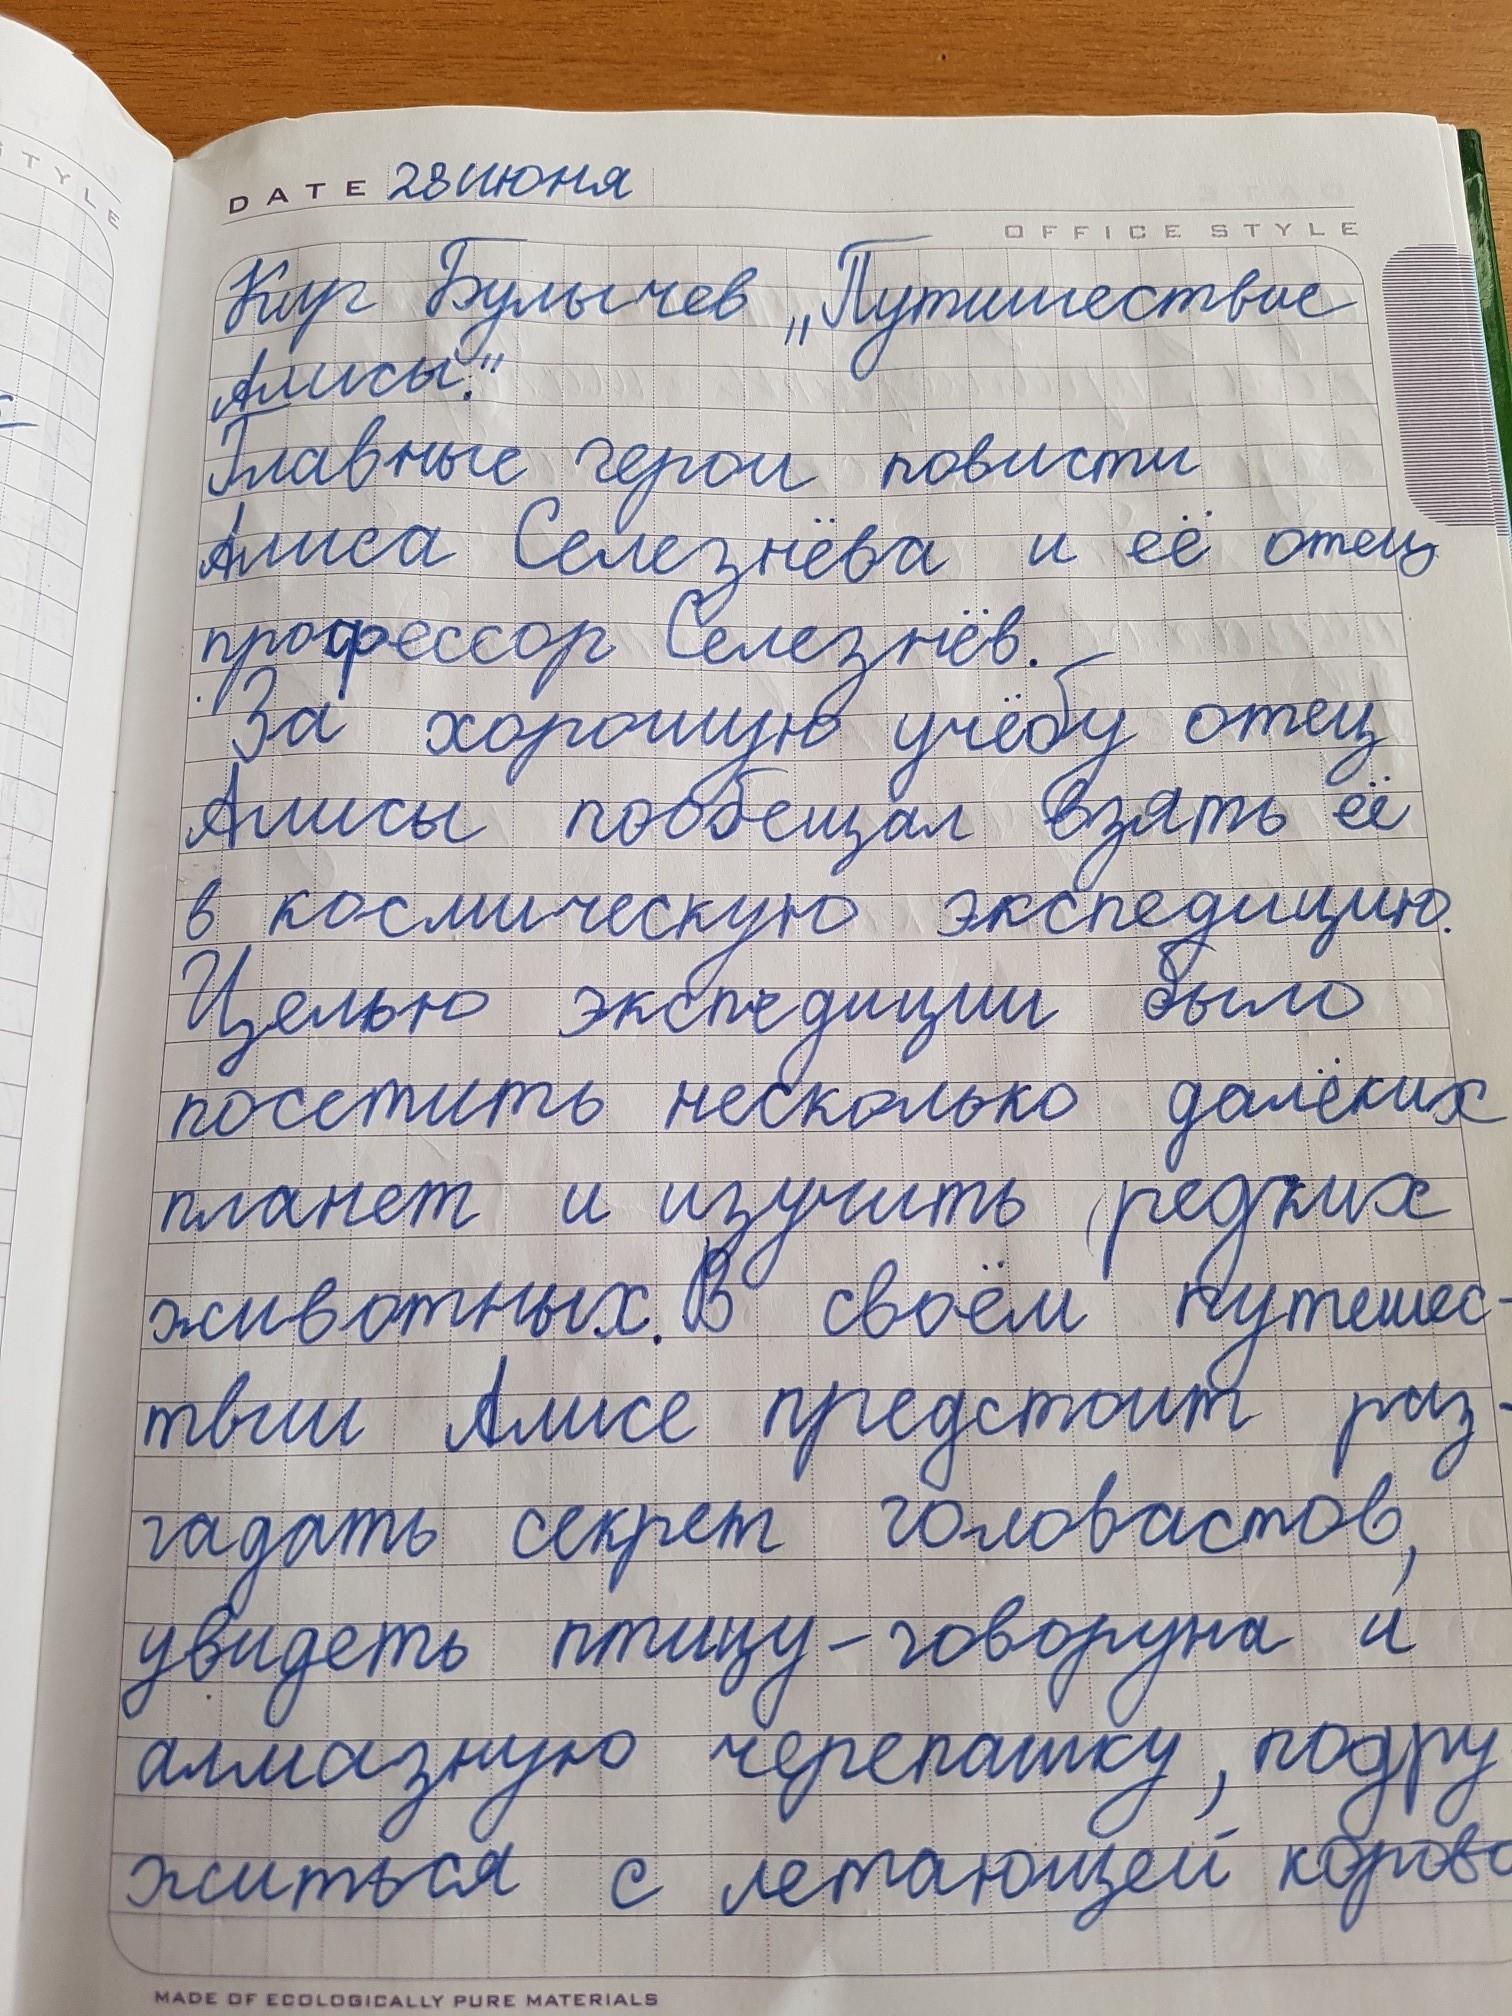 STYLE
DATE 28 июня
OFFICE STYLE
Кир Булычев „Путишествие
Алисы."
Главные герои повисти
Алиса Селезнёва и её отец
профессор Селезнёв.
За хорошую учёбу отец
Алисы пообещал взять её
в космическую экспедицию.
Целью экспедиции было
посетить несколько далёких
планет и изучить редких
животных. В своём путешес-
твии Алисе предстоит раз-
гадать секрет головастов,
увидеть птицу-говоруна и
алмазную черепашку, подру
житься с летающей корово
MADE OF ECOLOGICALLY PURE MATERIALS